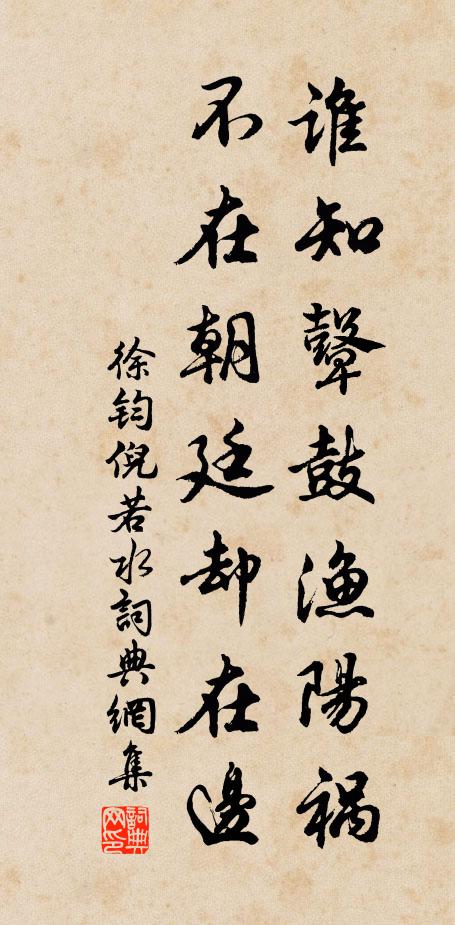 誰知鼙鼓漁陽禍
不在朝廷却在邊
徐鈞倪若水詞典網集
詞典网印